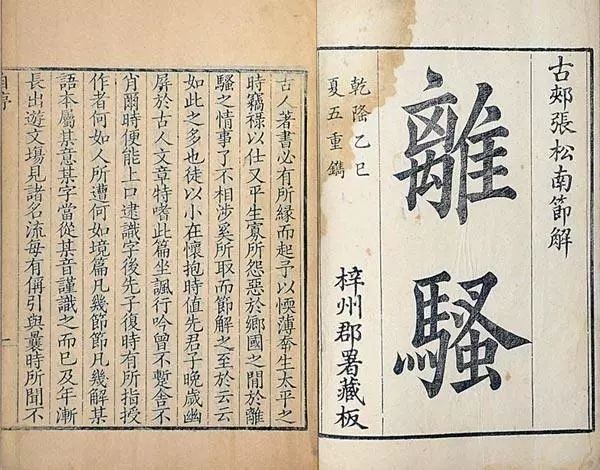 古郟張松南節解
離騷
乾隆乙巳
夏五重鐫
梓州郡署藏板
古人著書必有所緣而起予以愞薄幸生太平之
時竊祿以仕又平生寡所怨惡於鄉國之閒於離
騷之情事了不相涉奚所取而節解之至於云云
如此之多也徒以小在懷抱時值先君子晚歲幽
屏於古人文章特嗜此篇坐諷行吟曾不蹔舍不
肖爾時便能上口逮識字後先子復時有所指授
作者何如人所遭何如境篇凡幾節節凡幾解某
語本屬某意某字當從某音謹識之而已及年漸
長出遊文場見諸名流每有偁引與曩時所聞不
一